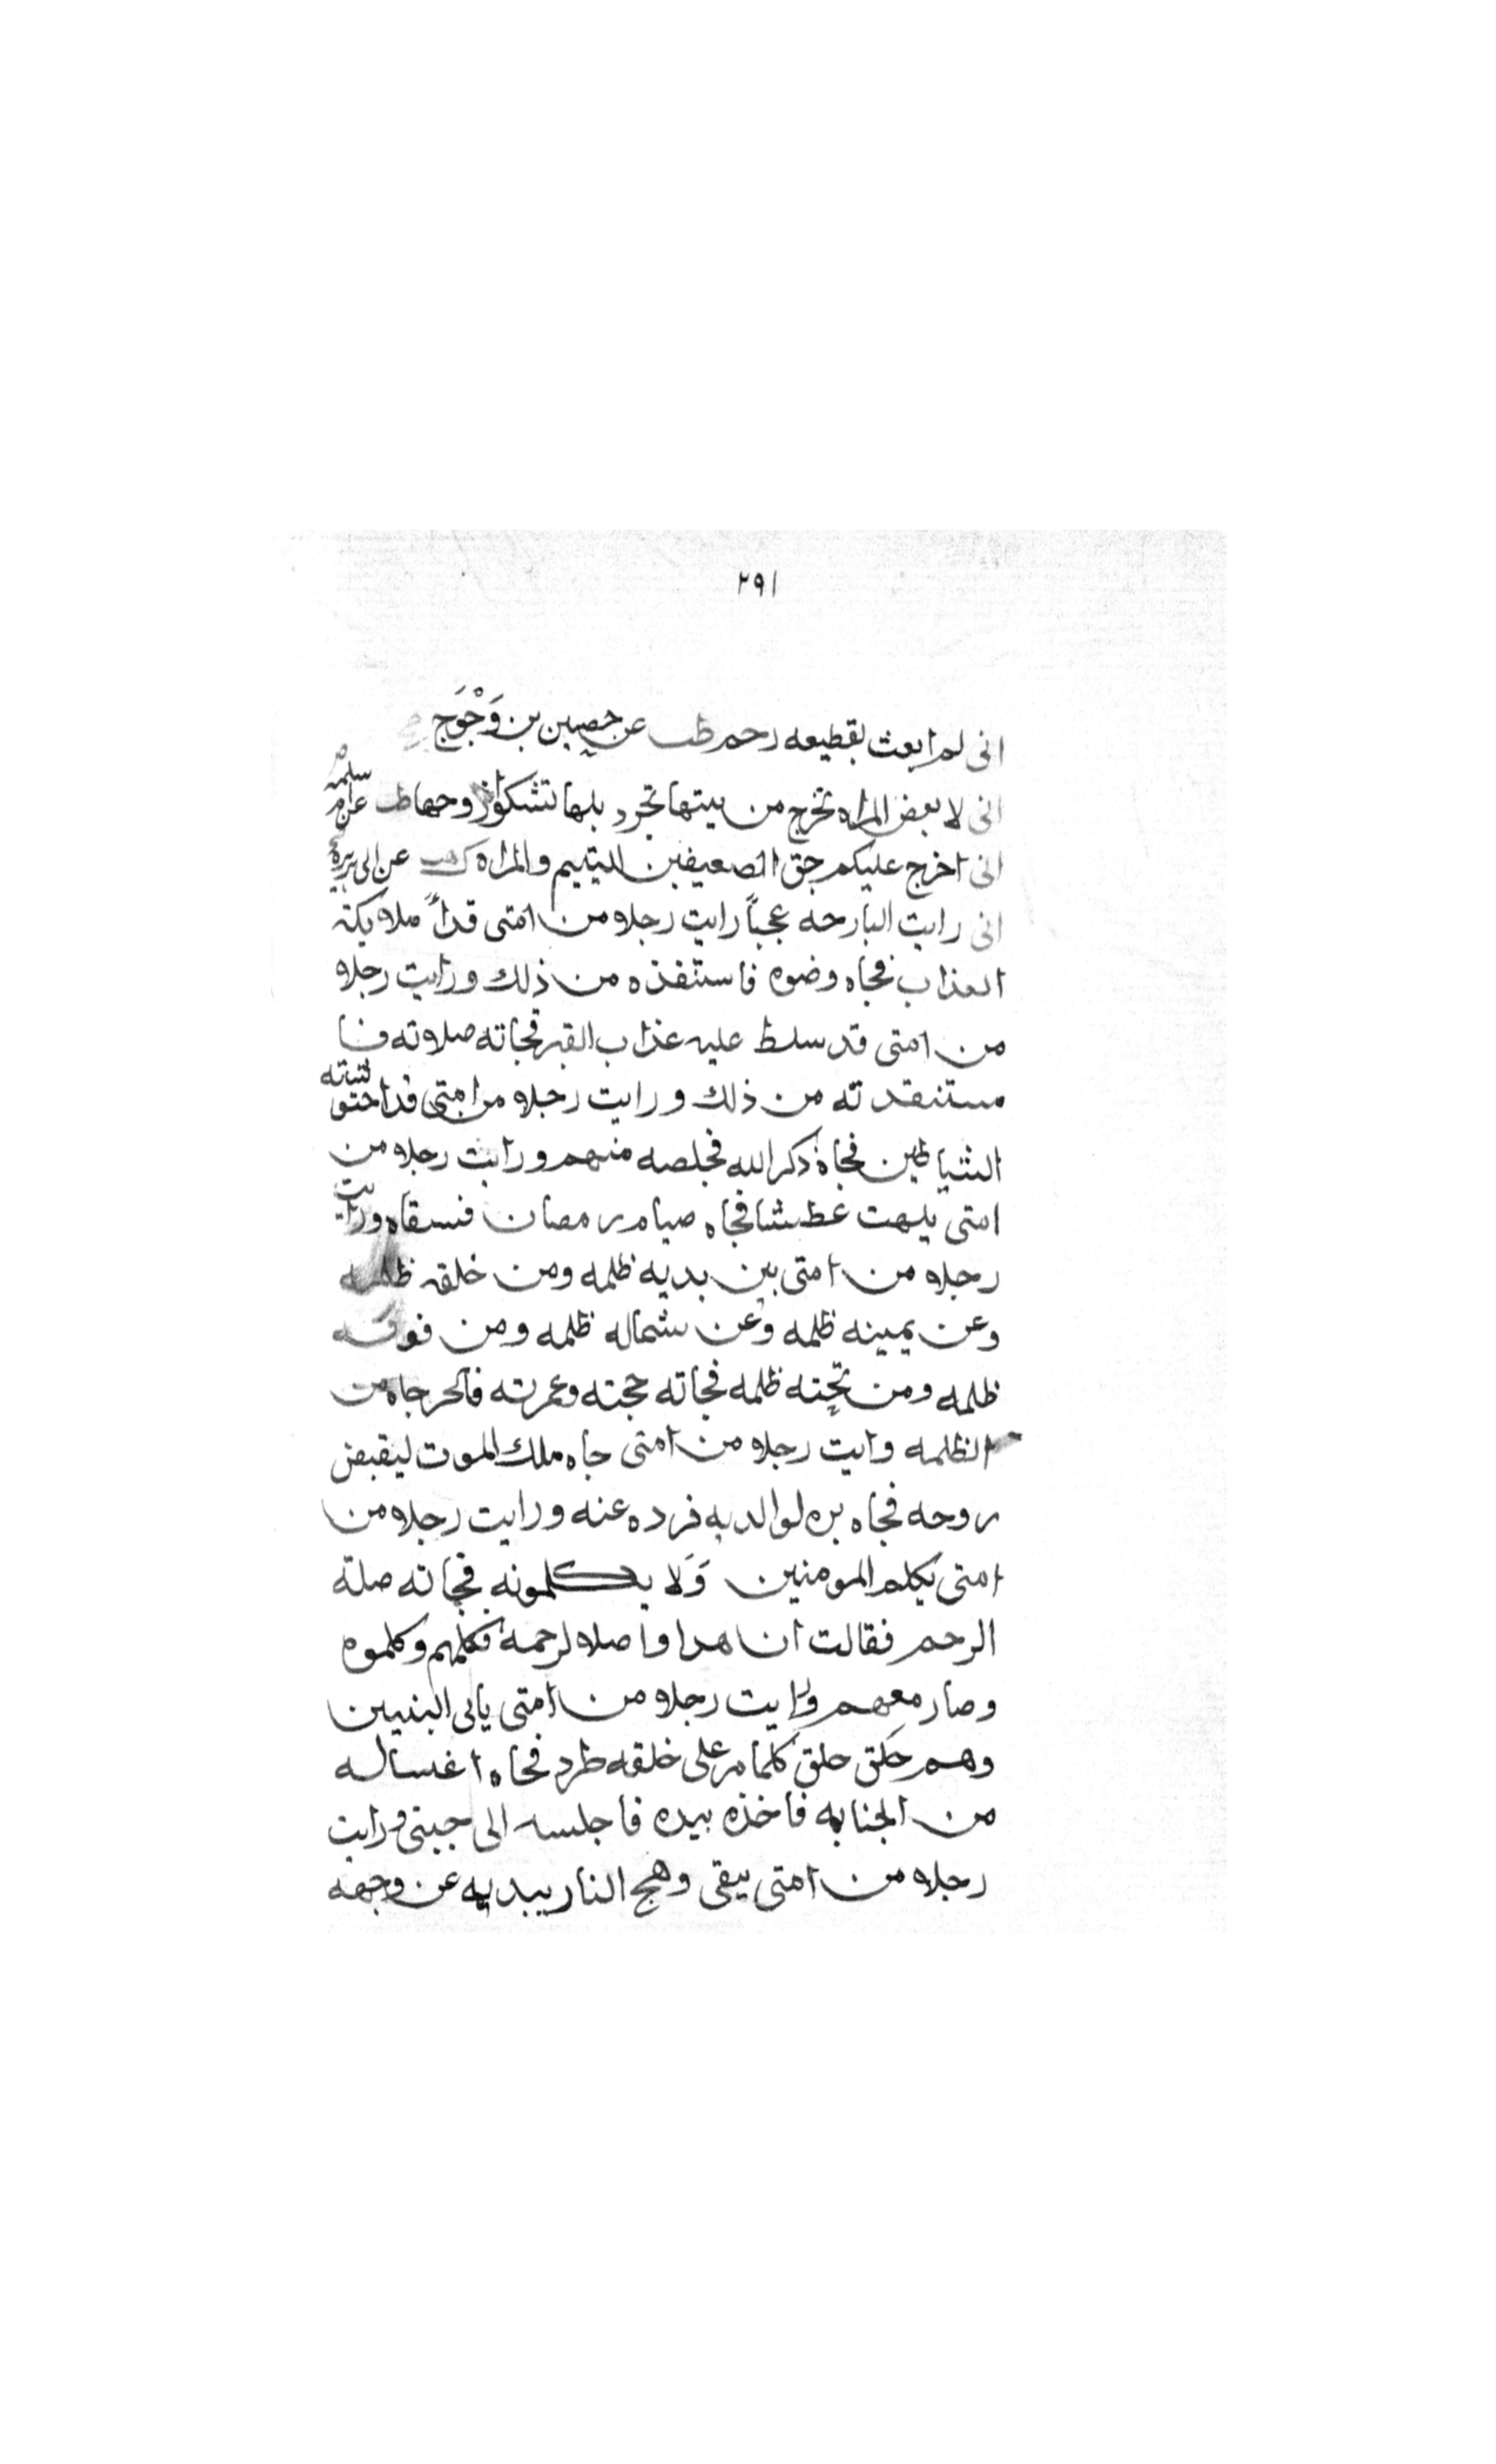 ٢٩١
انى لم ابعث بقطيعه رحم طب عن حصين بن وَحْوَح
انى لا بعض المراه تخرج من بيتها تجر ديلها تشكوا زوجها طب عن ام سلمه
انى احرج عليكم حق الضعيفين اليتيم والمراه ك هب عن ابى هريرة
انى رايت البارحه عجباً رايت رجلا من امتى قد ملايكة
العذاب فجاه وضوه فاستنقذه من ذلك ورايت رجلا
من امتى قد سلط عليه عذاب القبر فجاته صلاته فا
ستنقدته من ذلك ورايت رجلا من امتى قد احتوشته
الشياطين فجاه ذكر الله فخلصه منهم ورايت رجلا من
امتى يلهث عطشا فجاه صيام رمضان فسقاه ورايت
رجلا من امتى بين يديه ظلمه ومن خلفه ظلمه
وعن يمينه ظلمه وعن شماله ظلمه ومن فوقه
ظلمه ومن تحته ظلمه فجاته حجته وعمرته فاخرجاه من
الظلمه ورايت رجلا من امتى جاه ملك الموت ليقبض
روحه فجاه بره لوالديه فرده عنه ورايت رجلا من
امتى يكلم المومنين وَلا يكلمونه فجاته صلة
الرحم فقالت ان هدا واصلا لرحمه فكلمهم وكلموه
وصار معهم ورايت رجلا من امتى ياتى النبيين
وهم حَلق حلق كلما مر على حلقه طرد فجاه اغتساله
من الجنابه فاخذه بيده فاجلسه الى جنبى ورايت
رجلا من امتى يتقى وهج النار بيديه عن وجهه